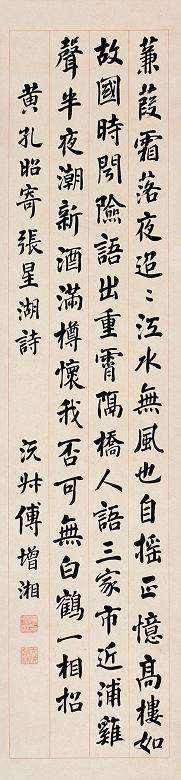 蒹葭霜落夜迢〻江水無風也自搖正憶高樓如
故國時聞險語出重霄隔橋人語三家市近浦雞
聲半夜潮新酒滿樽懷我否可無白鶴一相招
黃孔昭寄張星湖詩
沅叔傅增湘